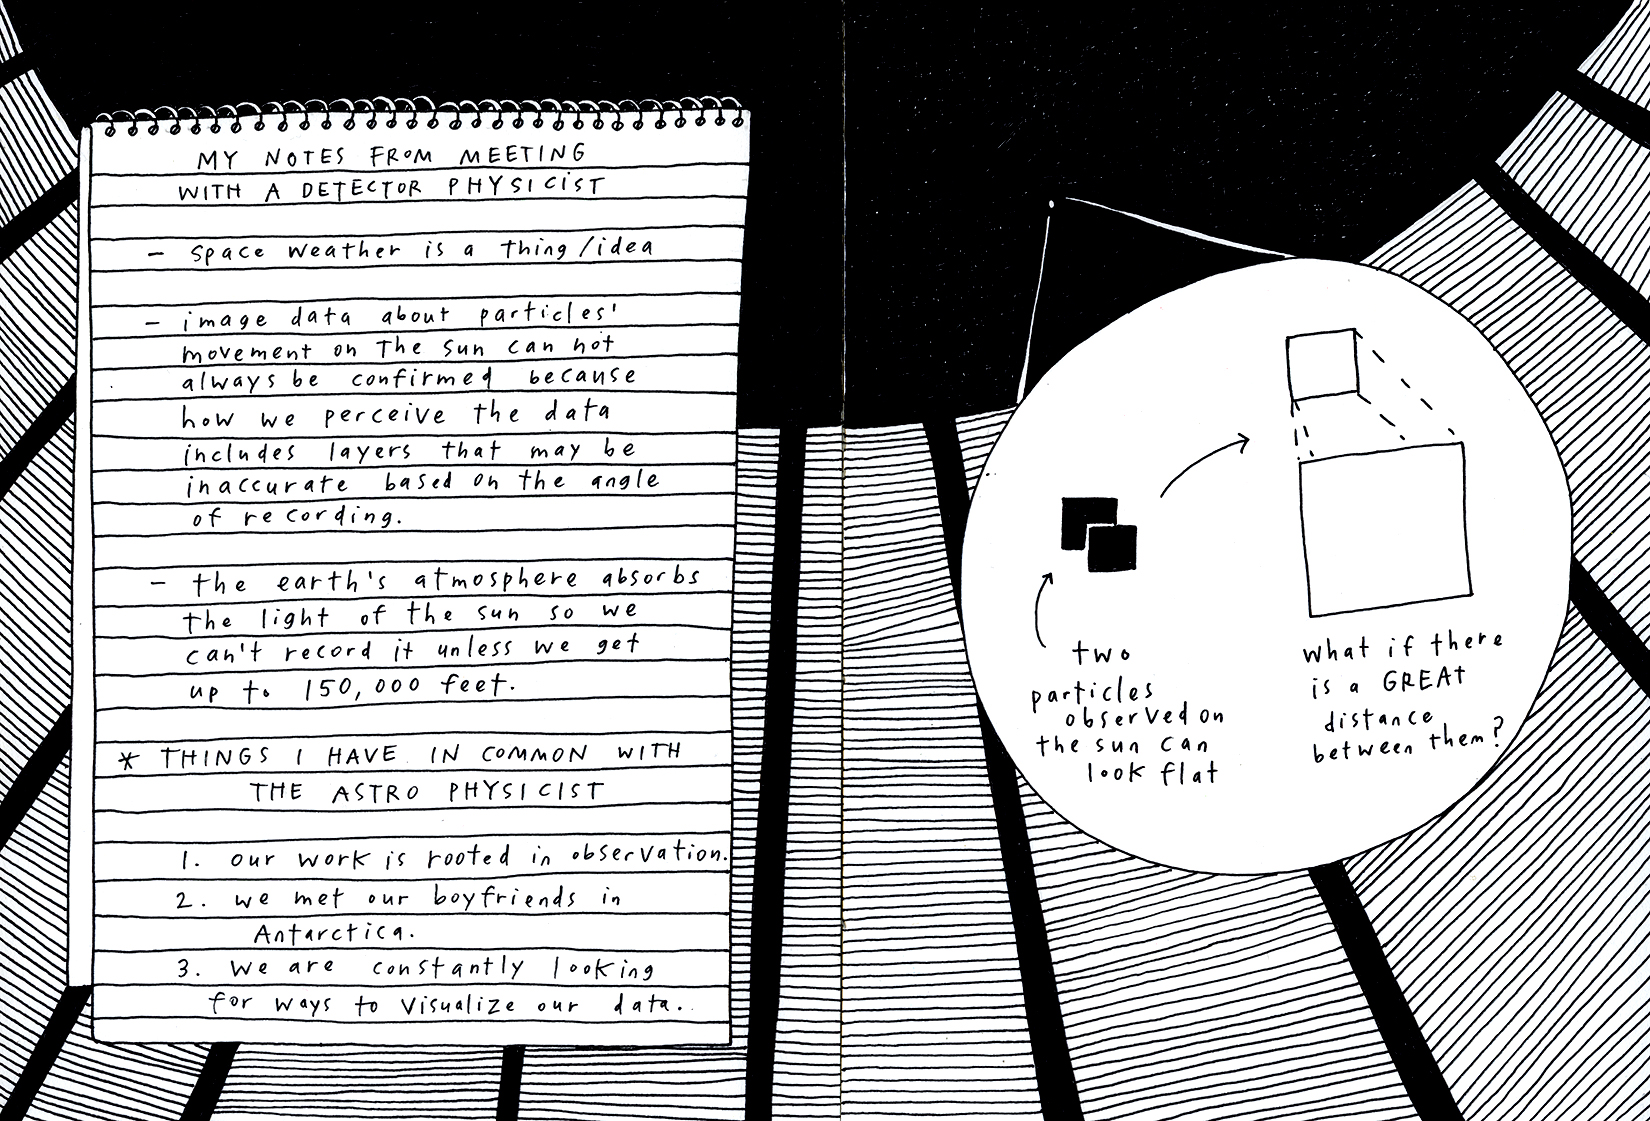 MY NOTES FROM MEETING
WITH A DETECTOR PHYSICIST
- space weather is a thing/idea
- image data about particles'
movement on The sun can not
always be confirmed because
how we perceive the data
includes layers that may be
inaccurate based on the angle
of recording.
- the earth's atmosphere absorbs
the light of the sun so we
can't record it unless we get
up to 150,000 feet.
* THINGS I HAVE IN COMMON WITH
THE ASTRO PHYSICIST
1. our work is rooted in observation.
2. we met our boyfriends in
Antarctica.
3. we are constantly looking
for ways to visualize our data.
two
particles
observed on
the sun can
look flat
what if there
is a GREAt
distance
between them?